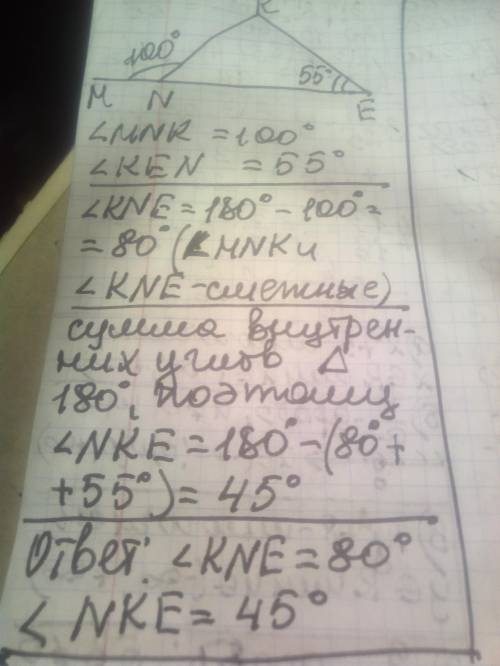 K
100°
55°
M N E
∠MNK = 100°
∠KEN = 55°
∠KNE = 180° - 100° =
= 80° (∠MNK и
∠KNE - смежные)
сумма внутрен-
них углов Δ
180°, поэтому
∠NKE = 180° - (80° +
+ 55°) = 45°
Ответ: ∠KNE = 80°
∠NKE = 45°